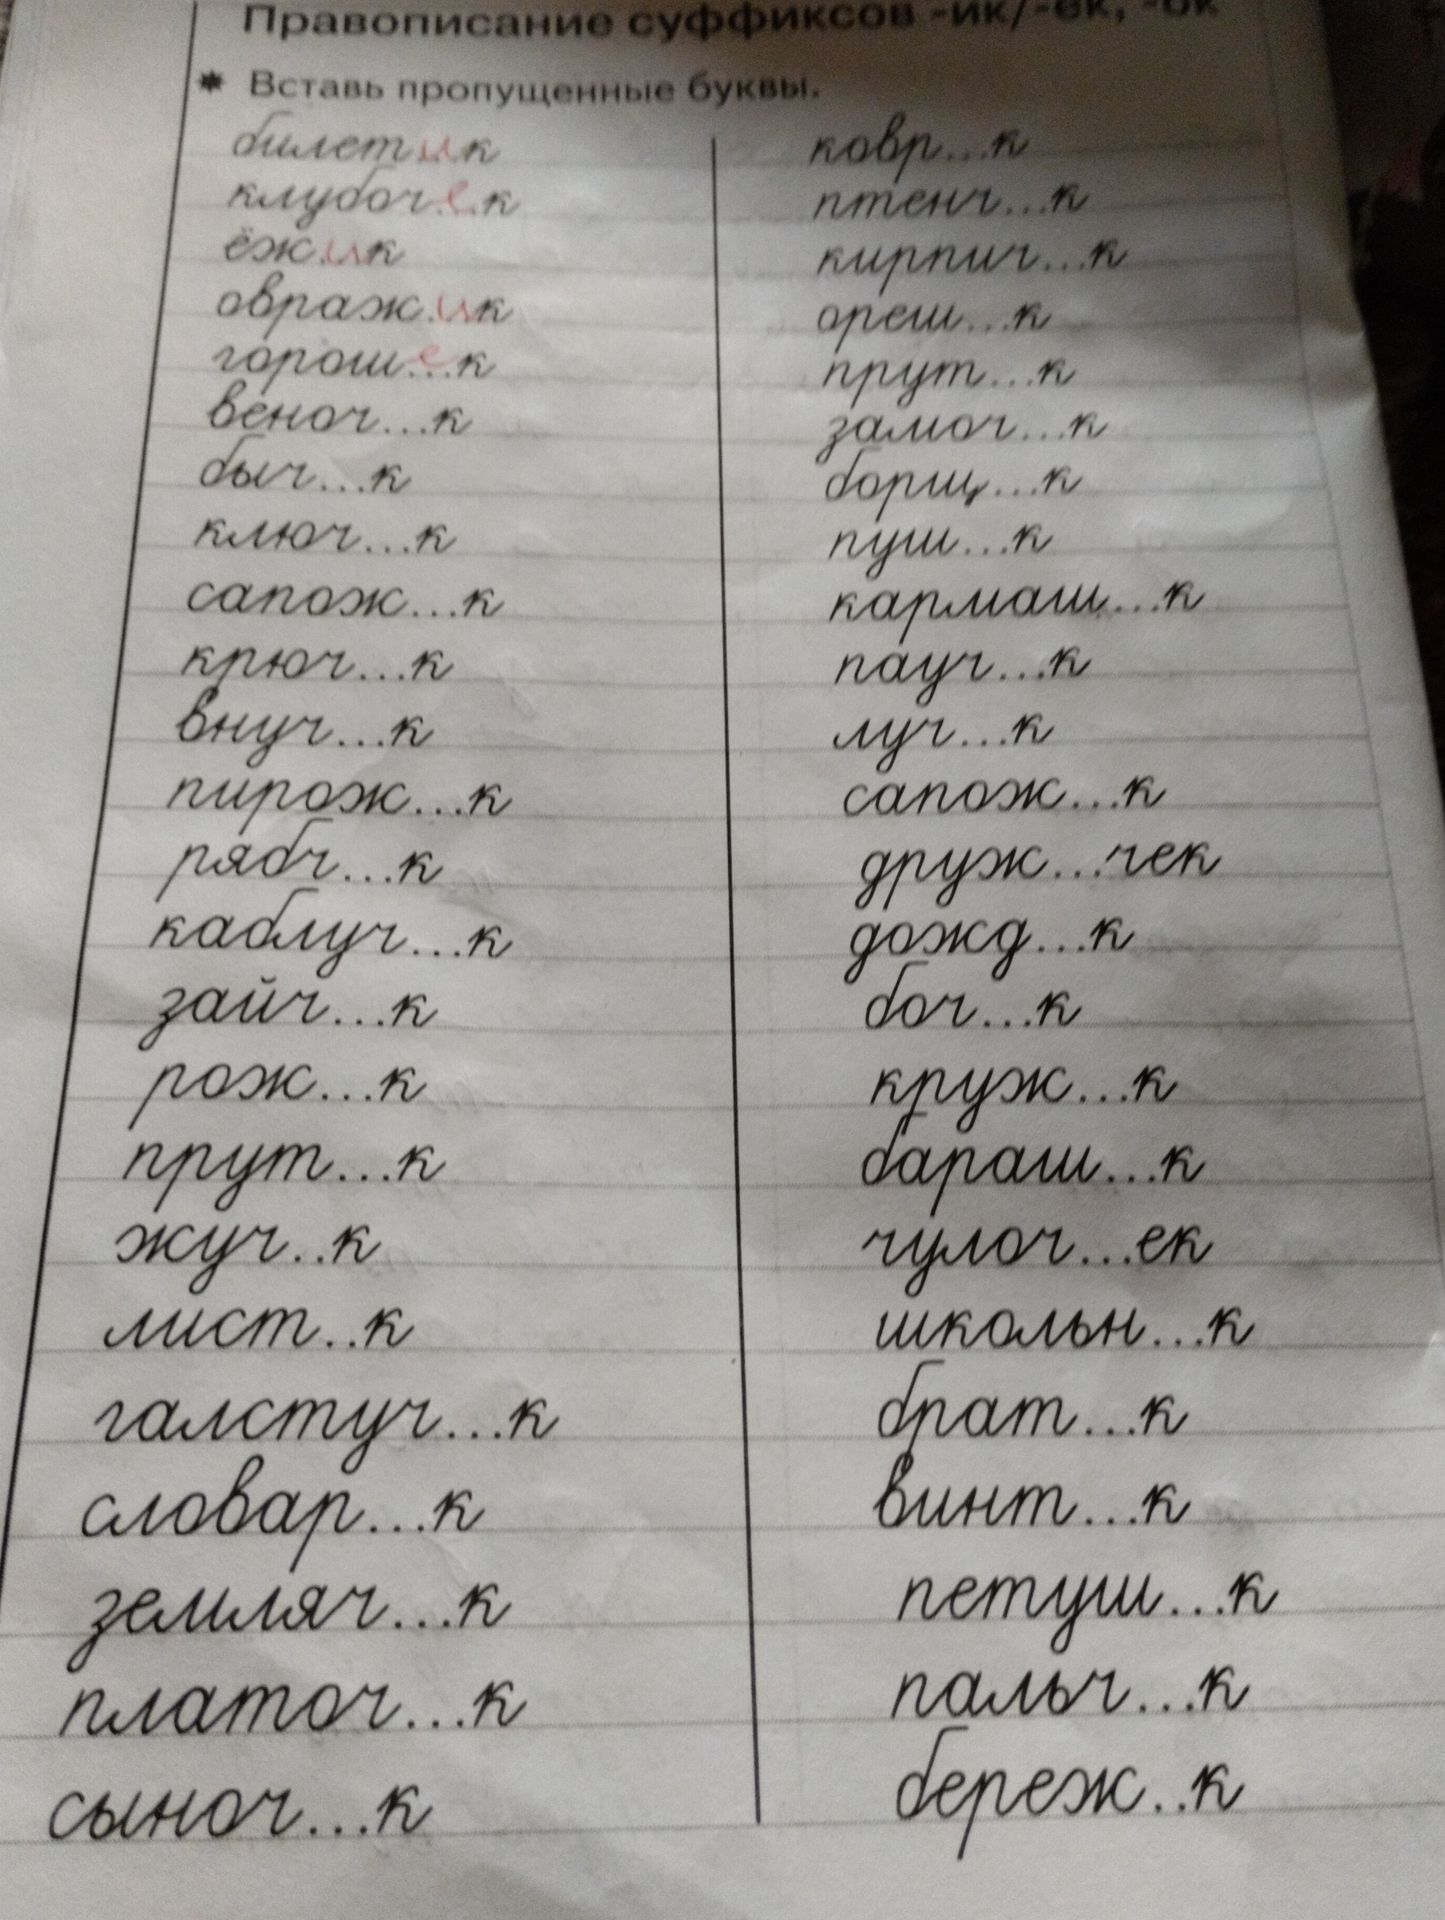 Правописание суффиксов -ик/-ек, -ок
* Вставь пропущенные буквы.
билет и к
клубоч.е.к
ёж.и.к
овраж.и.к
горош.е.к
веноч...к
быч...к
ключ...к
сапож...к
крюч...к
внуч...к
пирож...к
рябч...к
каблуч...к
зайч...к
рож...к
прут...к
жуч..к
лист..к
галстуч...к
словар...к
земляч...к
платоч...к
сыноч...к
ковр...к
птенч...к
кирпич...к
ореш...к
прут...к
замоч...к
борщ...к
пуш...к
кармаш...к
пауч...к
луч...к
сапож...к
друж...чек
дожд...к
боч...к
круж...к
бараш...к
чулоч...ек
школьн...к
брат...к
винт...к
петуш...к
пальч...к
береж..к